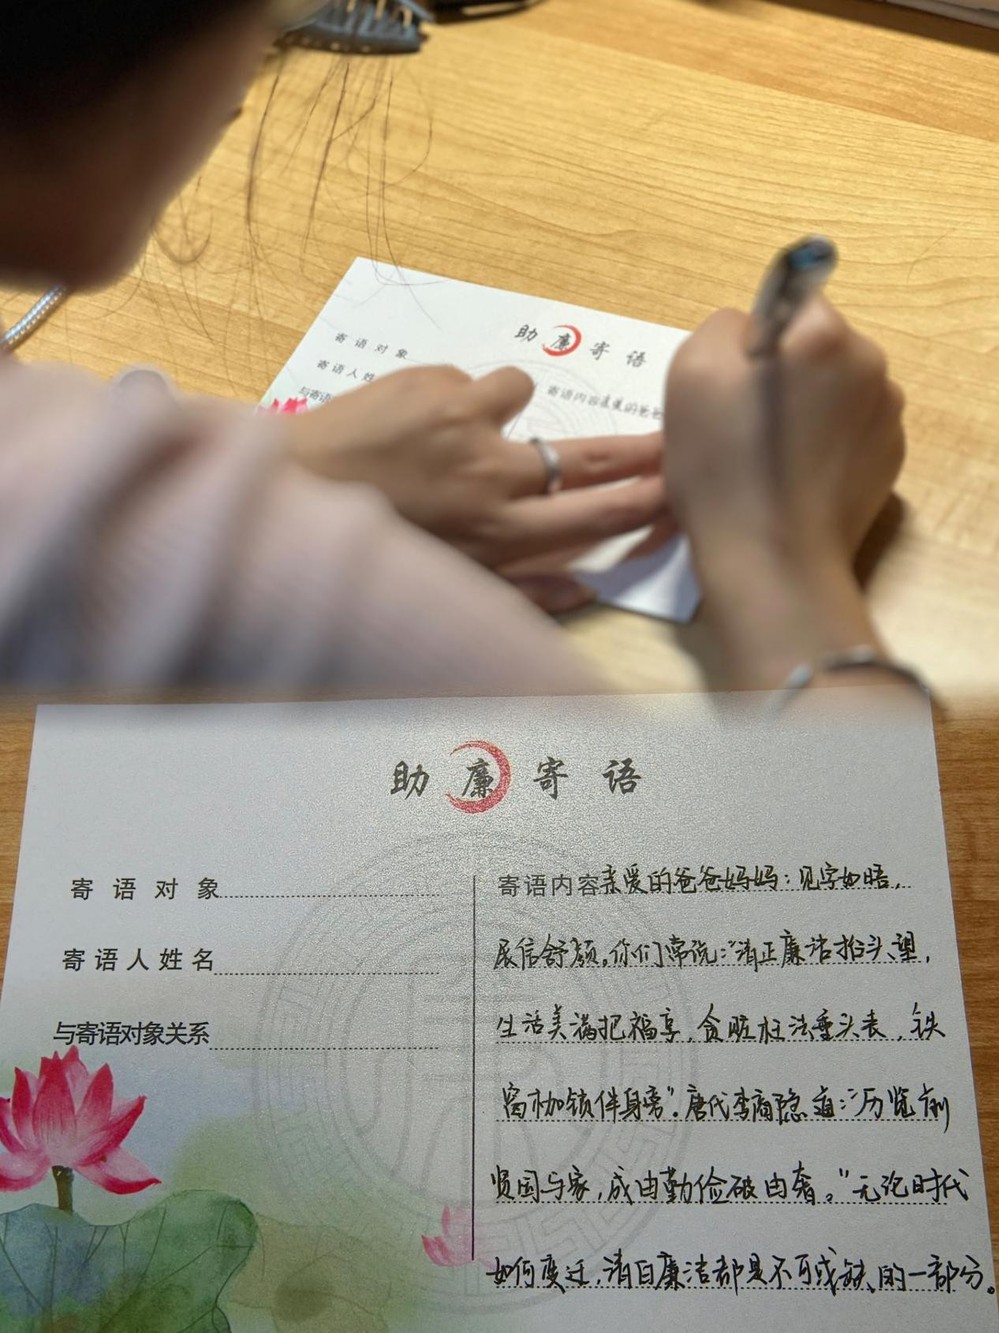 助廉寄语
寄语对象
寄语人姓
与寄语
寄语内容亲爱的爸爸
助廉寄语
寄语对象
寄语人姓名
与寄语对象关系
寄语内容亲爱的爸爸妈妈：见字如晤，
展信舒颜，你们常说：“清正廉洁抬头望，
生活美满把福享，贪赃枉法垂头丧，铁
窗枷锁伴身旁”。唐代李商隐道：“历览前
贤国与家，成由勤俭破由奢。”无论时代
如何变迁，清白廉洁都是不可或缺的一部分。
廉